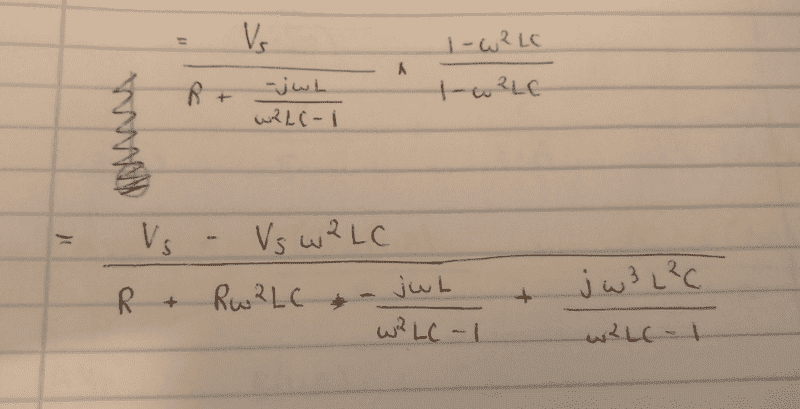 = Vs / (R + (-jωL)/(ω²LC-1)) × (1-ω²LC)/(1-ω²LC)
= (Vs - Vsω²LC) / (R + Rω²LC - jωL/(ω²LC-1) + jω³L²C/(ω²LC-1))